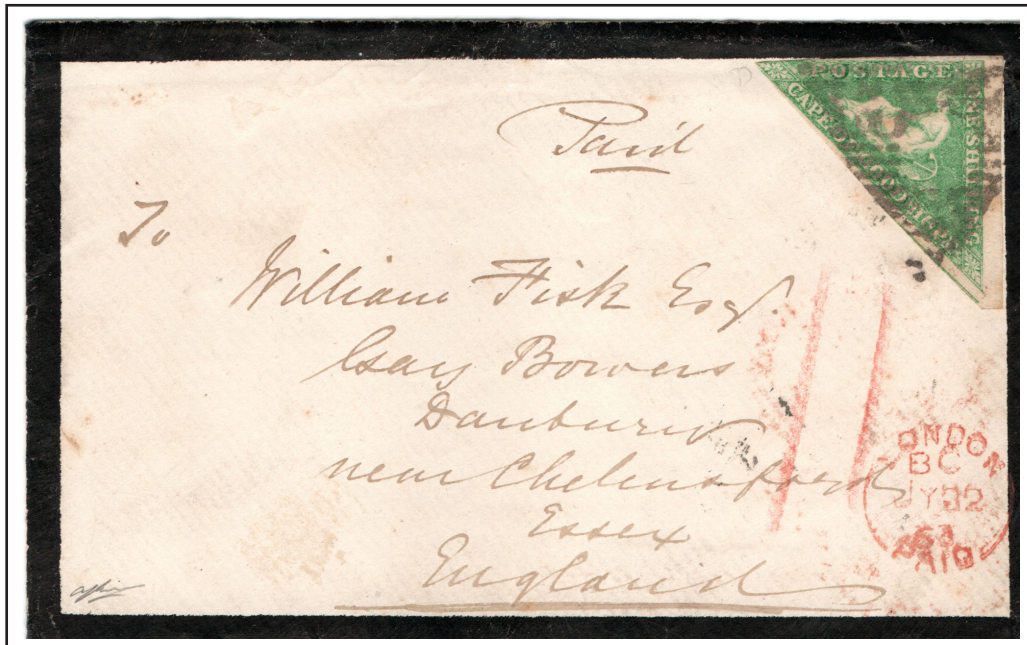 POSTAGE
CAPE OF GOOD HOPE
Paid
To
William Fisk Esqr.
Gay Bowers
Danbury
near Chelmsford
Essex
England
LONDON
BC
JY
63
PAID